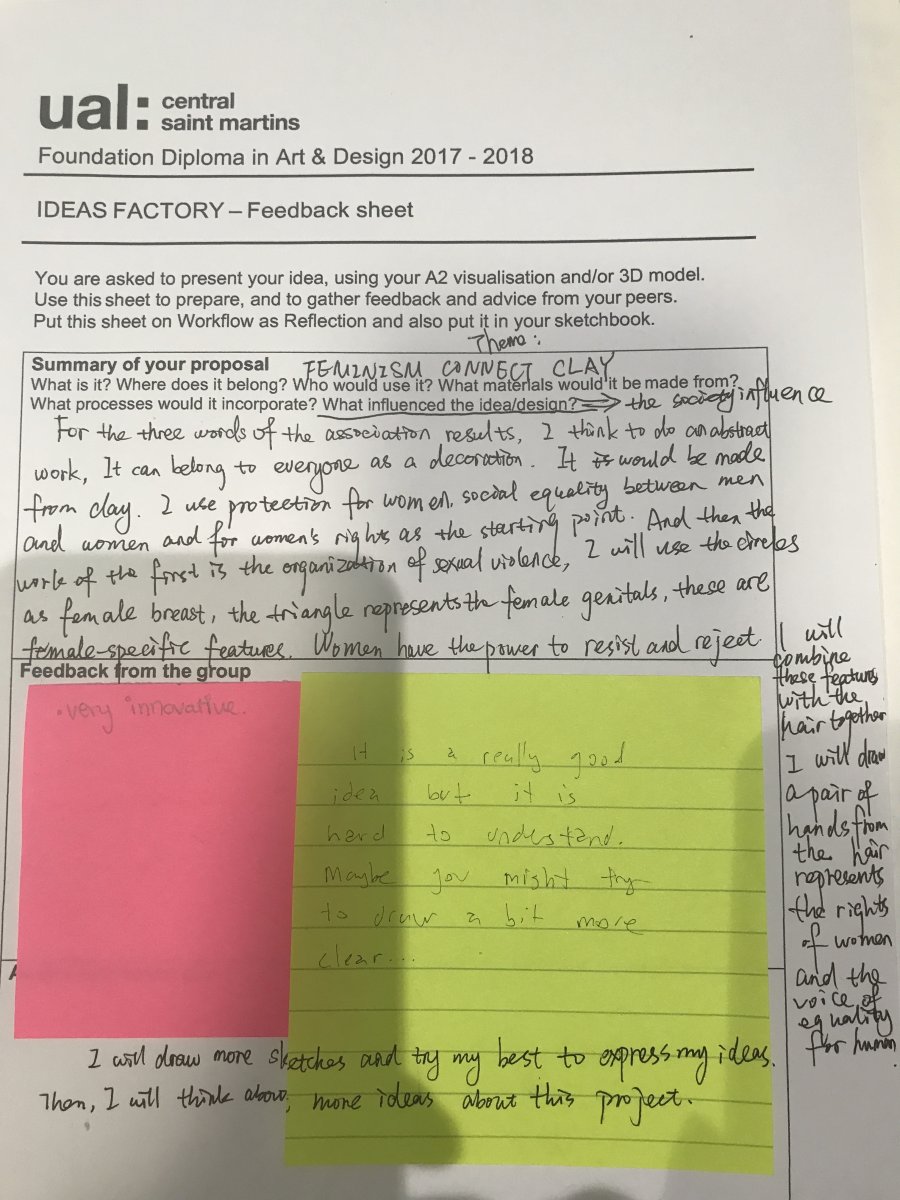 ual: central
saint martins
Foundation Diploma in Art & Design 2017 - 2018
IDEAS FACTORY – Feedback sheet
You are asked to present your idea, using your A2 visualisation and/or 3D model.
Use this sheet to prepare, and to gather feedback and advice from your peers.
Put this sheet on Workflow as Reflection and also put it in your sketchbook.
Theme:
Summary of your proposal FEMINISM CONNECT CLAY
What is it? Where does it belong? Who would use it? What materials would it be made from?
What processes would it incorporate? What influenced the idea/design? ⟹ the society influence
For the three words of the association results, I think to do an abstract
work, It can belong to everyone as a decoration. It is would be made
from clay. I use protection for women, social equality between men
and women and for women's rights as the starting point. And then the
work of the first is the organization of sexual violence, I will use the circles
as female breast, the triangle represents the female genitals, these are
female-specific features. Women have the power to resist and reject.
I will
combine
these features
with the
hair together
I will draw
a pair of
hands from
the hair
represents
the rights
of women
and the
voice of
equality
for human
Feedback from the group
• very innovative.
It is a really good
idea but it is
hard to understand.
Maybe you might try
to draw a bit more
clear...
A
I will draw more sketches and try my best to express my ideas.
Then, I will think above, more ideas about this project.